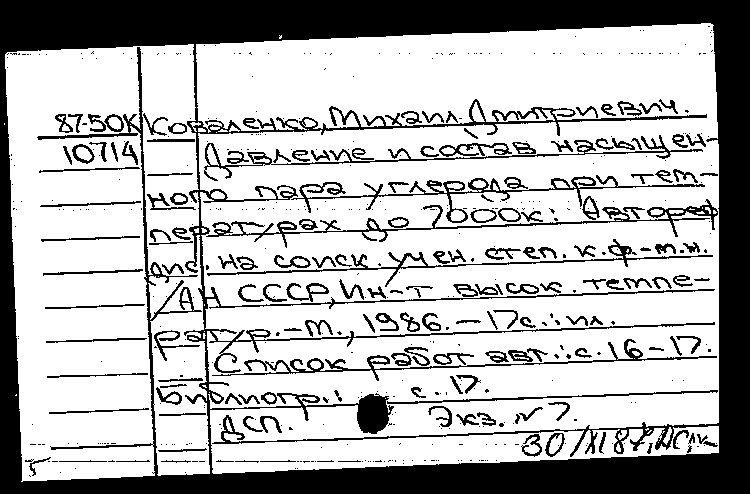 87-50К Коваленко, Михаил Дмитриевич.
10714 Давление и состав насыщен-
ного пара углерода при тем-
пературах до 7000К: Автореф
дис. на соиск. учен. степ. к.ф-м.н.
/АН СССР, Ин-т высок. темпе-
ратур.-М., 1986.-17с.:ил.
Список работ авт.:с.16-17.
Библиогр.: с.17.
ДСП. Экз. № 7.
30/XI 87,